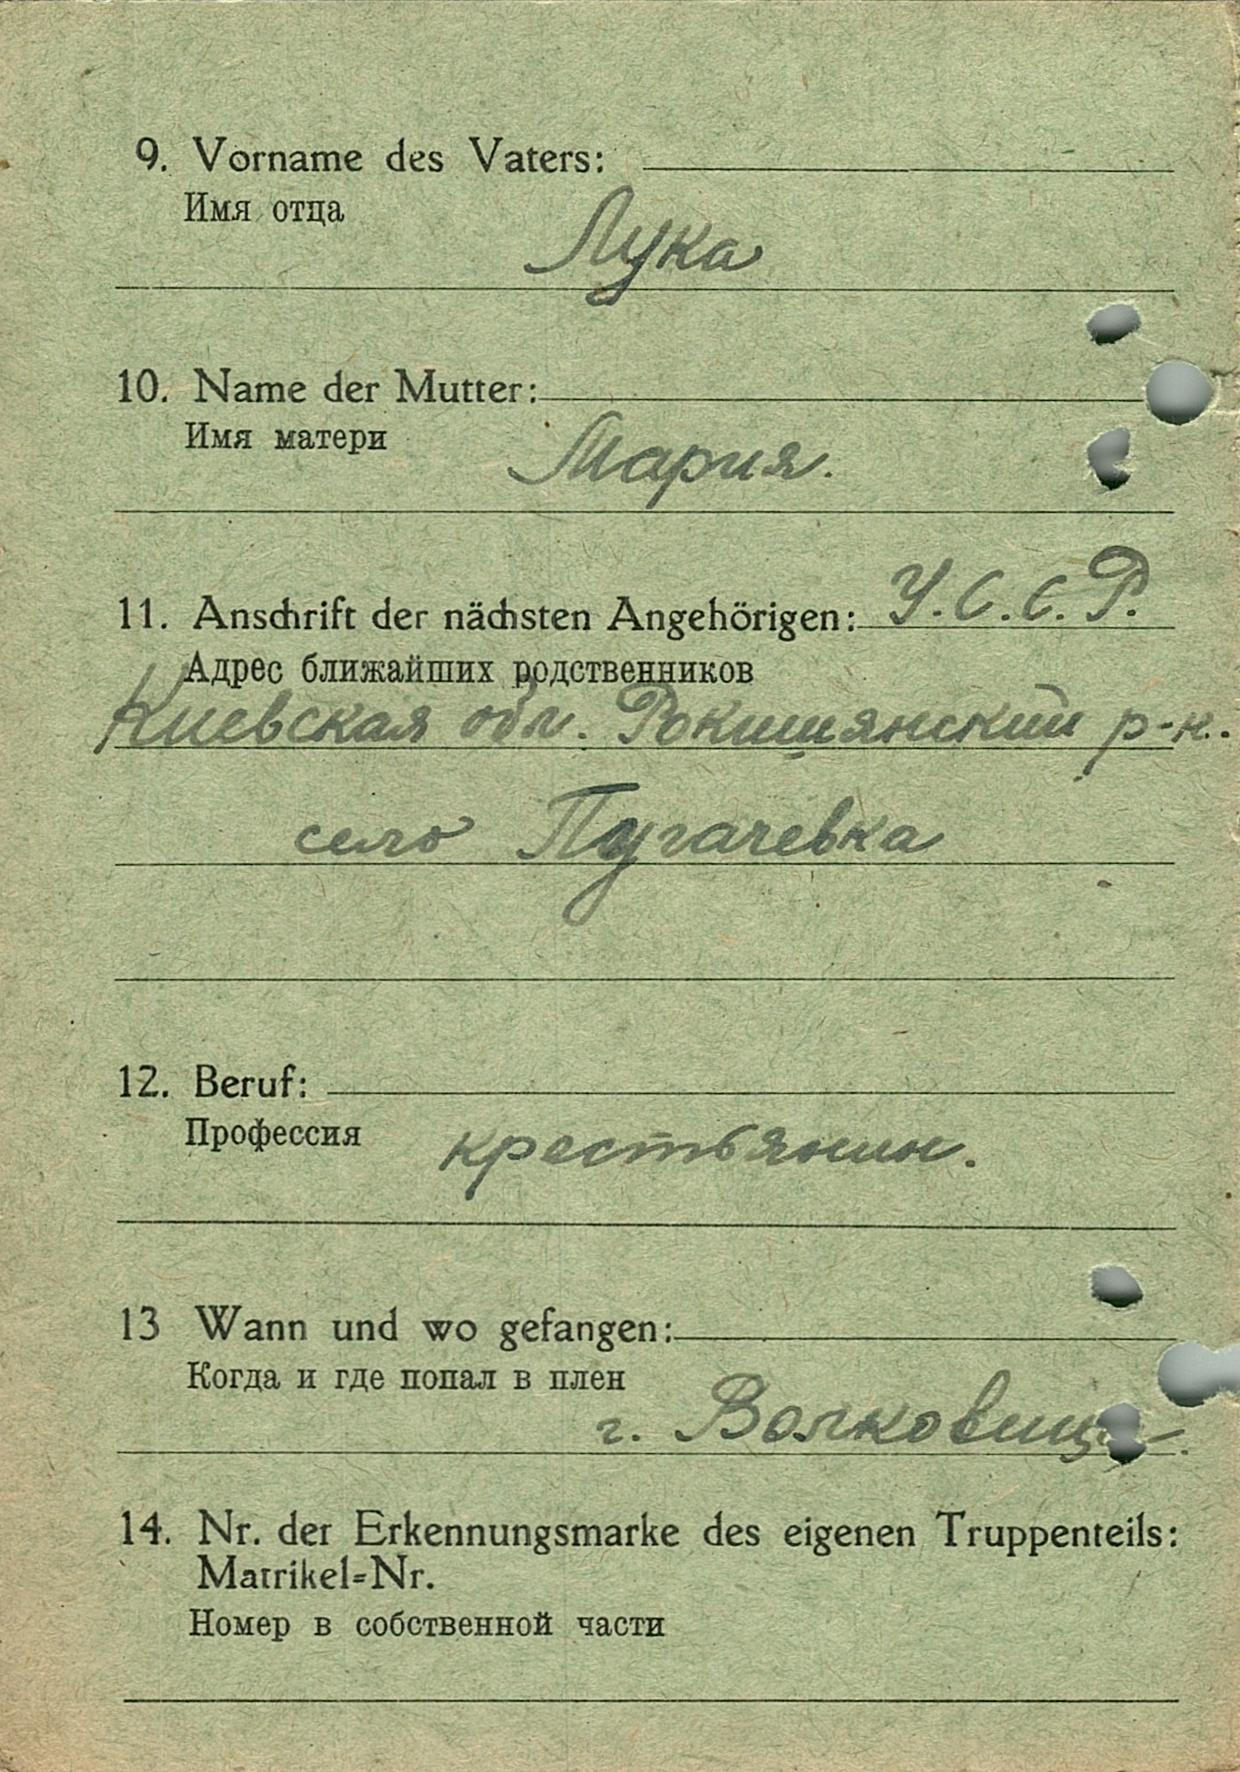 9. Vorname des Vaters:
Имя отца
Лука
10. Name der Mutter:
Имя матери
Мария.
11. Anschrift der nächsten Angehörigen: У.С.С.Р.
Адрес ближайших родственников
Киевская обл. Рокитянский р-н.
село Пугачевка
12. Beruf:
Профессия
крестьянин.
13 Wann und wo gefangen:
Когда и где попал в плен
г.
14. Nr. der Erkennungsmarke des eigenen Truppenteils:
Matrikel=Nr.
Номер в собственной части